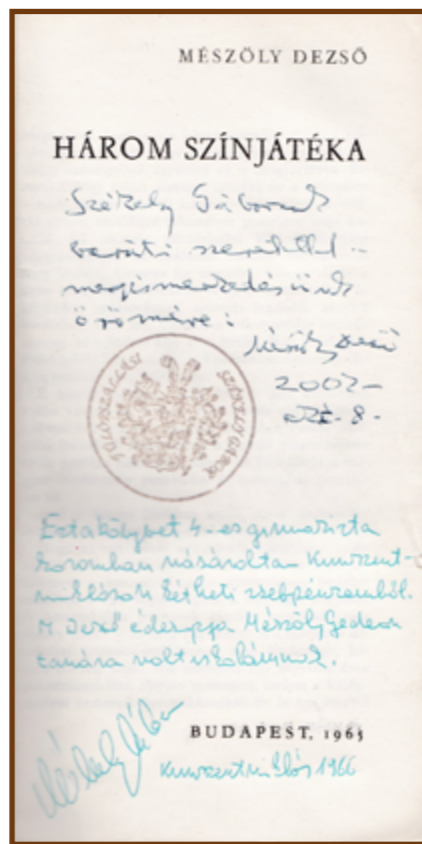 MÉSZÖLY DEZSŐ
HÁROM SZÍNJÁTÉKA
Székely Gábornak
baráti szeretettel –
megismerkedésünk
örömére:
Mészöly Dezső
2002 –
8.
SZÉKELY GÁBOR
Ezt a könyvet 4-es gimnazista
koromban vásároltam Kunszent-
miklóson két heti zsebpénzemből.
M. Dezső édesapja Mészöly Gedeon
tanára volt iskolámnak.
Székely Gábor
BUDAPEST, 1965
Kunszentmiklós 1966